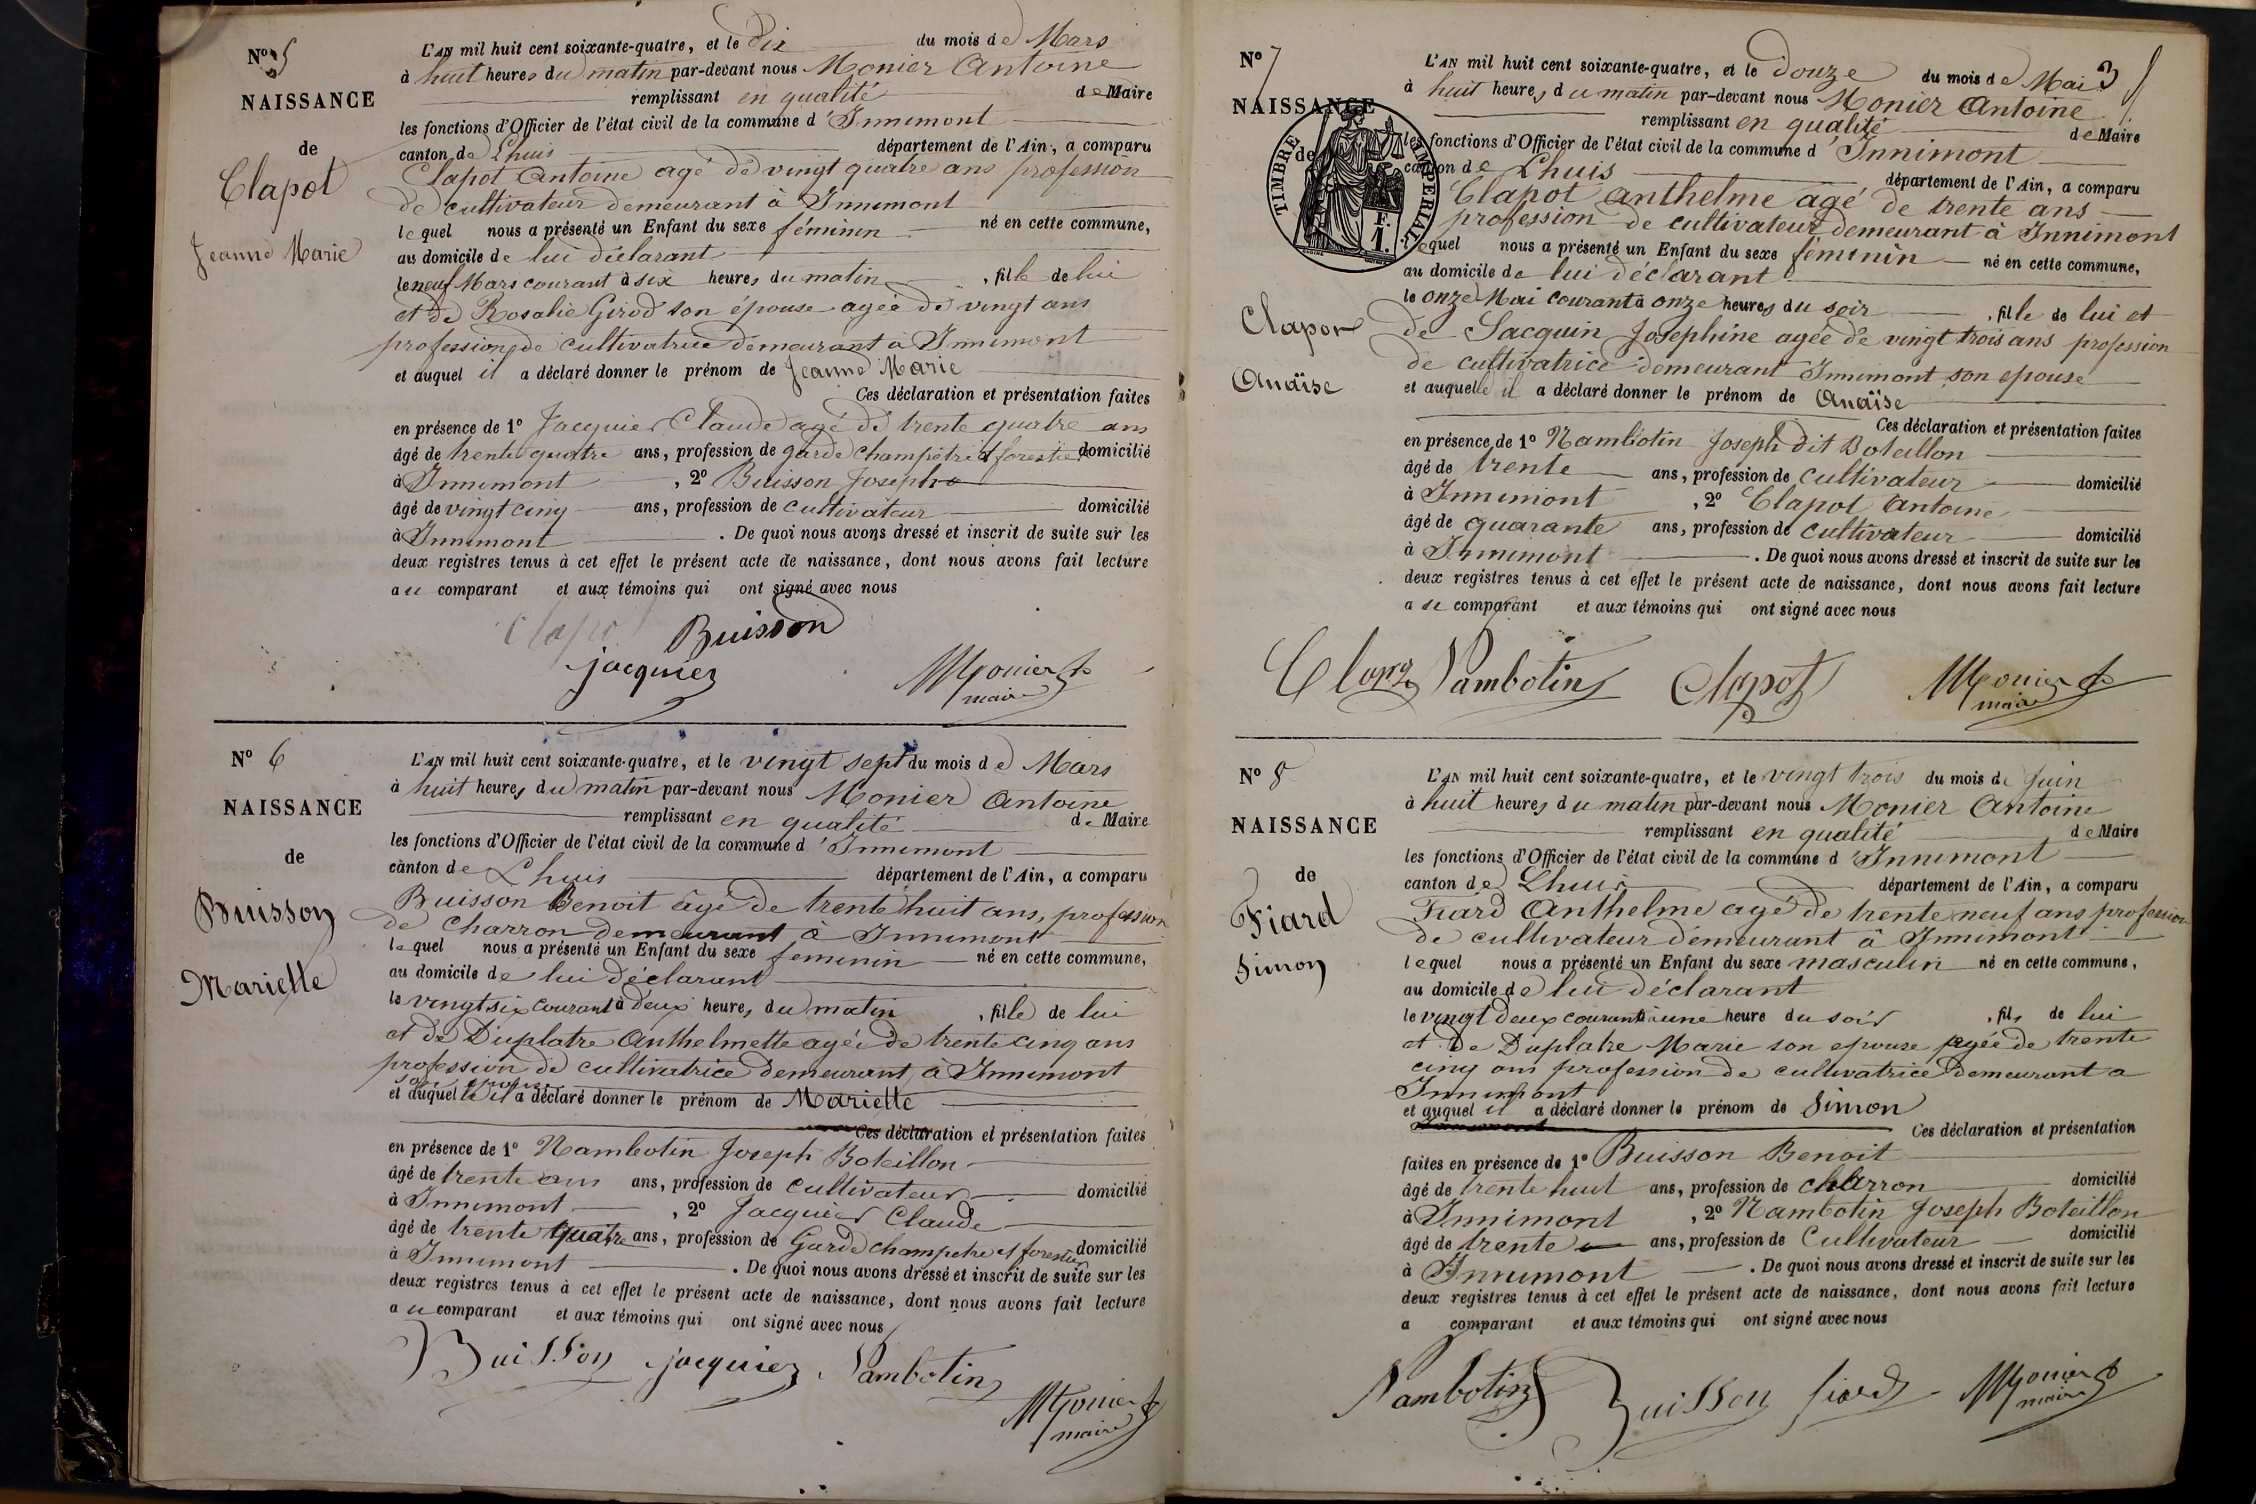 No 5
NAISSANCE
de
Clapot
Jeanne Marie
L'AN mil huit cent soixante-quatre, et le dix du mois de Mars
à huit heures du matin par-devant nous Monier Antoine
remplissant en qualité de Maire
les fonctions d'Officier de l'état civil de la commune d'Innimont
canton de Lhuis département de l'Ain, a comparu
Clapot Antoine agé de vingt quatre ans profession
de cultivateur demeurant à Innimont
lequel nous a présenté un Enfant du sexe féminin né en cette commune,
au domicile de lui déclarant
le neuf Mars courant à six heures du matin, fille de lui
et de Rosalie Girod son épouse agée de vingt ans
profession de cultivatrice demeurant à Innimont
et auquel il a déclaré donner le prénom de Jeanne Marie
Ces déclaration et présentation faites
en présence de 1o Jacquier Claude agé de trente quatre ans
âgé de trente quatre ans, profession de garde champêtre et forestier domicilié
à Innimont, 2o Buisson Joseph
âgé de vingt cinq ans, profession de cultivateur domicilié
à Innimont. De quoi nous avons dressé et inscrit de suite sur les
deux registres tenus à cet effet le présent acte de naissance, dont nous avons fait lecture
au comparant et aux témoins qui ont signé avec nous
Clapo Buisson
jacquier Monier
maire
No 6
NAISSANCE
de
Buisson
Mariette
L'AN mil huit cent soixante-quatre, et le vingt sept du mois de Mars
à huit heures du matin par-devant nous Monier Antoine
remplissant en qualité de Maire
les fonctions d'Officier de l'état civil de la commune d'Innimont
canton de Lhuis département de l'Ain, a comparu
Buisson Benoit âgé de trente huit ans, profession
de charron demeurant à Innimont
lequel nous a présenté un Enfant du sexe feminin né en cette commune,
au domicile de lui déclarant
le vingt six courant à deux heures du matin, fille de lui
et de Duplatre Anthelmette agée de trente cinq ans
profession de cultivatrice demeurant à Innimont
son epouse
et auquelle il a déclaré donner le prénom de Mariette
Ces déclaration et présentation faites
en présence de 1o Nambotin Joseph Boteillon
âgé de trente ans ans, profession de cultivateur domicilié
à Innimont, 2o Jacquier Claude
âgé de trente quatre ans, profession de Garde champetre et forestier domicilié
à Innimont. De quoi nous avons dressé et inscrit de suite sur les
deux registres tenus à cet effet le présent acte de naissance, dont nous avons fait lecture
au comparant et aux témoins qui ont signé avec nous
Buisson jacquier Nambotin
Monier
maire
No 7
3
NAISSANCE
de
TIMBRE IMPERIAL
F.
1.
Clapot
Anaïse
L'AN mil huit cent soixante-quatre, et le douze du mois de Mai
à huit heures du matin par-devant nous Monier Antoine
remplissant en qualité de Maire
les fonctions d'Officier de l'état civil de la commune d'Innimont
canton de Lhuis département de l'Ain, a comparu
Clapot Anthelme agé de trente ans
profession de cultivateur demeurant à Innimont
lequel nous a présenté un Enfant du sexe féminin né en cette commune,
au domicile de lui déclarant
le onze Mai courant à onze heures du soir, fille de lui et
de Jacquin Josephine agée de vingt trois ans profession
de cultivatrice demeurant Innimont son epouse
et auquelle il a déclaré donner le prénom de Anaïse
Ces déclaration et présentation faites
en présence de 1o Nambotin Joseph dit Boteillon
âgé de trente ans, profession de cultivateur domicilié
à Innimont, 2o Clapot Antoine
âgé de quarante ans, profession de cultivateur domicilié
à Innimont. De quoi nous avons dressé et inscrit de suite sur les
deux registres tenus à cet effet le présent acte de naissance, dont nous avons fait lecture
a comparant et aux témoins qui ont signé avec nous
Nambotin Clapot Monier
maire
No 8
NAISSANCE
de
Fiard
Simon
L'AN mil huit cent soixante-quatre, et le vingt trois du mois de Juin
à huit heures du matin par-devant nous Monier Antoine
remplissant en qualité de Maire
les fonctions d'Officier de l'état civil de la commune d'Innimont
canton de Lhuis département de l'Ain, a comparu
Fiard Anthelme agé de trente neuf ans profession
de cultivateur demeurant à Innimont
lequel nous a présenté un Enfant du sexe masculin né en cette commune,
au domicile de lui déclarant
le vingt deux courant à une heure du soir, fils de lui
et de Duplatre Marie son epouse agée de trente
cinq ans profession de cultivatrice demeurant a
Innimont
et auquel il a déclaré donner le prénom de Simon
Ces déclaration et présentation
faites en présence de 1o Buisson Benoit
âgé de trente huit ans, profession de charron domicilié
à Innimont, 2o Nambotin Joseph Boteillon
âgé de trente ans, profession de Cultivateur domicilié
à Innimont. De quoi nous avons dressé et inscrit de suite sur les
deux registres tenus à cet effet le présent acte de naissance, dont nous avons fait lecture
a comparant et aux témoins qui ont signé avec nous
Nambotin Buisson fiard Monier
maire